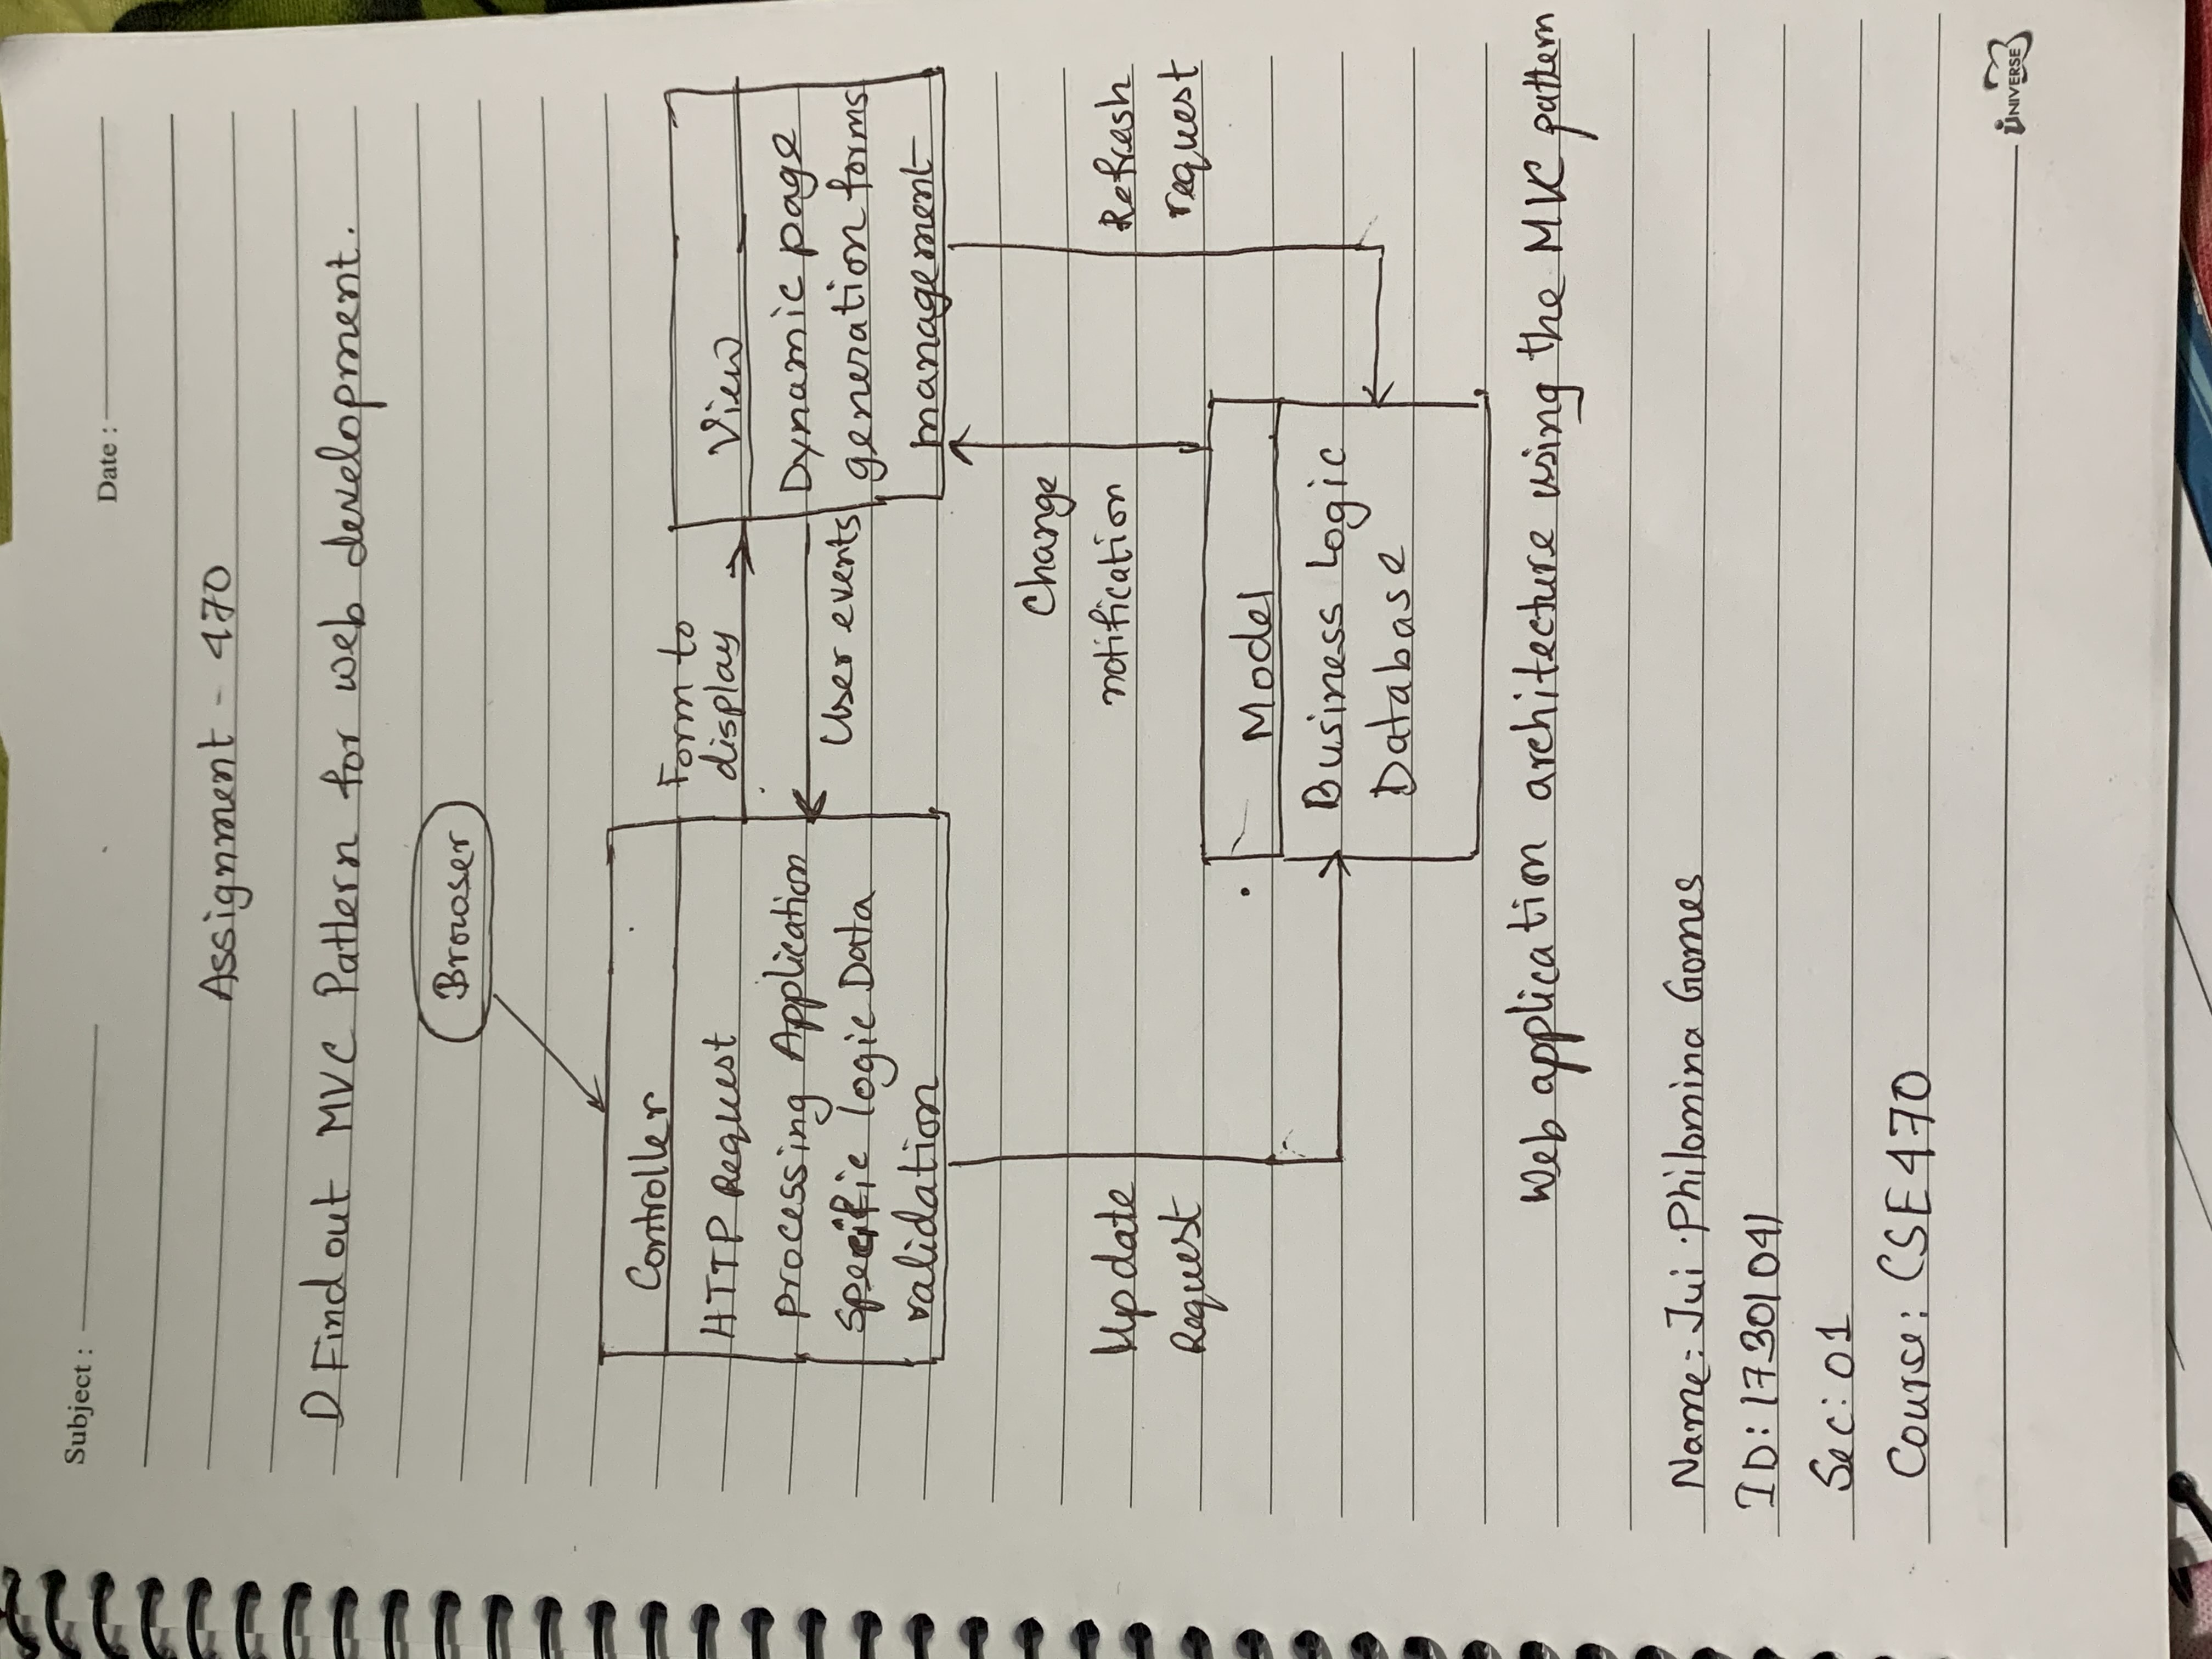 Subject :
Date :
Assignment - 470
1) Find out MVC Pattern for web development.
Browser
Controller
HTTP Request
processing Application
specific logic Data
validation
Form to
display
User events
View
Dynamic page
generation forms
management
Update
Request
Change
notification
Refresh
request
Model
Business Logic
Database
Web application architecture using the MVC pattern
Name: Jui Philomina Gomes
ID: 17301041
Sec: 01
Course: CSE470
UNIVERSE